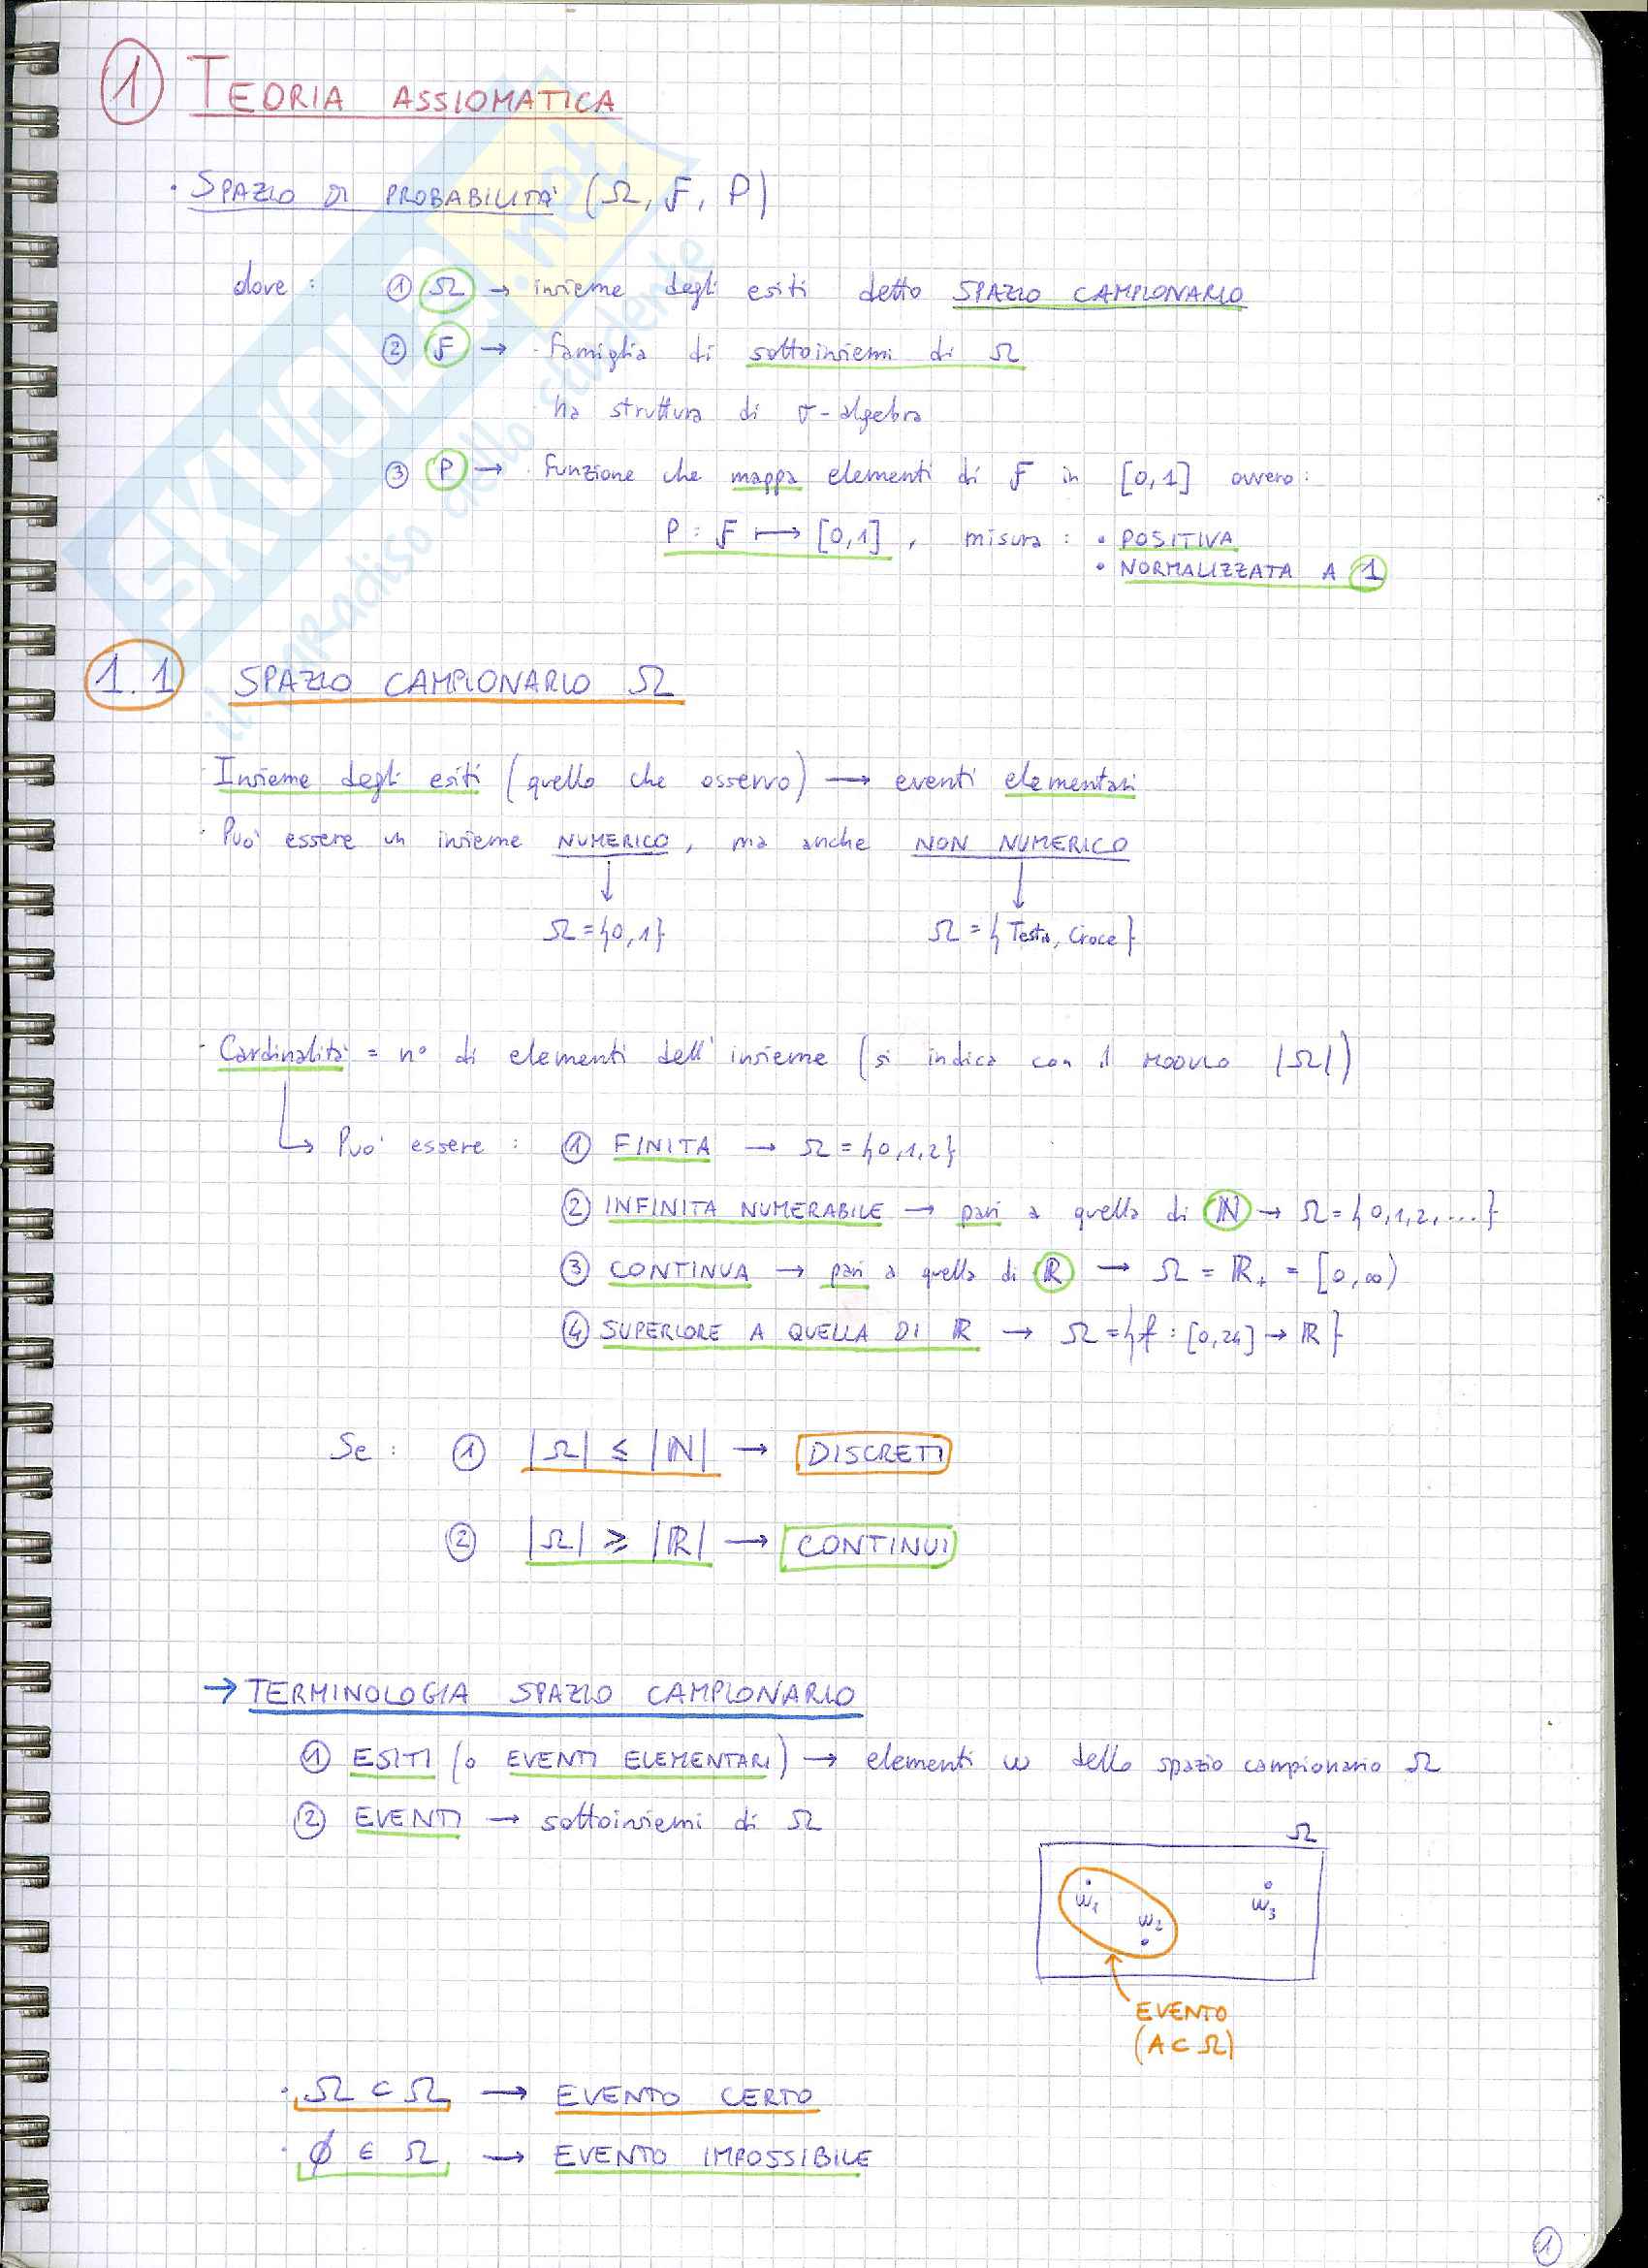 1 TEORIA ASSIOMATICA
· SPAZIO DI PROBABILITA' (Ω, F, P)
dove : ① Ω → insieme degli esiti detto SPAZIO CAMPIONARIO
② F → · famiglia di sottoinsiemi di Ω
· ha struttura di σ-algebra
③ P → · funzione che mappa elementi di F in [0,1] ovvero:
P : F ↦ [0,1] , misura : • POSITIVA
• NORMALIZZATA A 1
1.1 SPAZIO CAMPIONARIO Ω
· Insieme degli esiti (quello che osservo) → eventi elementari
· Puo' essere un insieme NUMERICO, ma anche NON NUMERICO
↓ ↓
Ω = {0,1} Ω = {Testa, Croce}
· Cardinalità = n° di elementi dell'insieme (si indica con il MODULO |Ω|)
↳ Puo' essere : ① FINITA → Ω = {0,1,2}
② INFINITA NUMERABILE → pari a quella di ℕ → Ω = {0,1,2,...}
③ CONTINUA → pari a quella di ℝ → Ω = ℝ₊ = [0,∞)
④ SUPERIORE A QUELLA DI ℝ → Ω = {f : [0,24] → ℝ}
Se : ① |Ω| ≤ |ℕ| → DISCRETI
② |Ω| ≥ |ℝ| → CONTINUI
→ TERMINOLOGIA SPAZIO CAMPIONARIO
① ESITI (o EVENTI ELEMENTARI) → elementi ω dello spazio campionario Ω
② EVENTI → sottoinsiemi di Ω
Ω
ω₁
ω₂
ω₃
EVENTO
(A ⊂ Ω)
· Ω ⊂ Ω → EVENTO CERTO
· ∅ ∈ Ω → EVENTO IMPOSSIBILE
1
SKUOLA.net
il paradiso dello studente